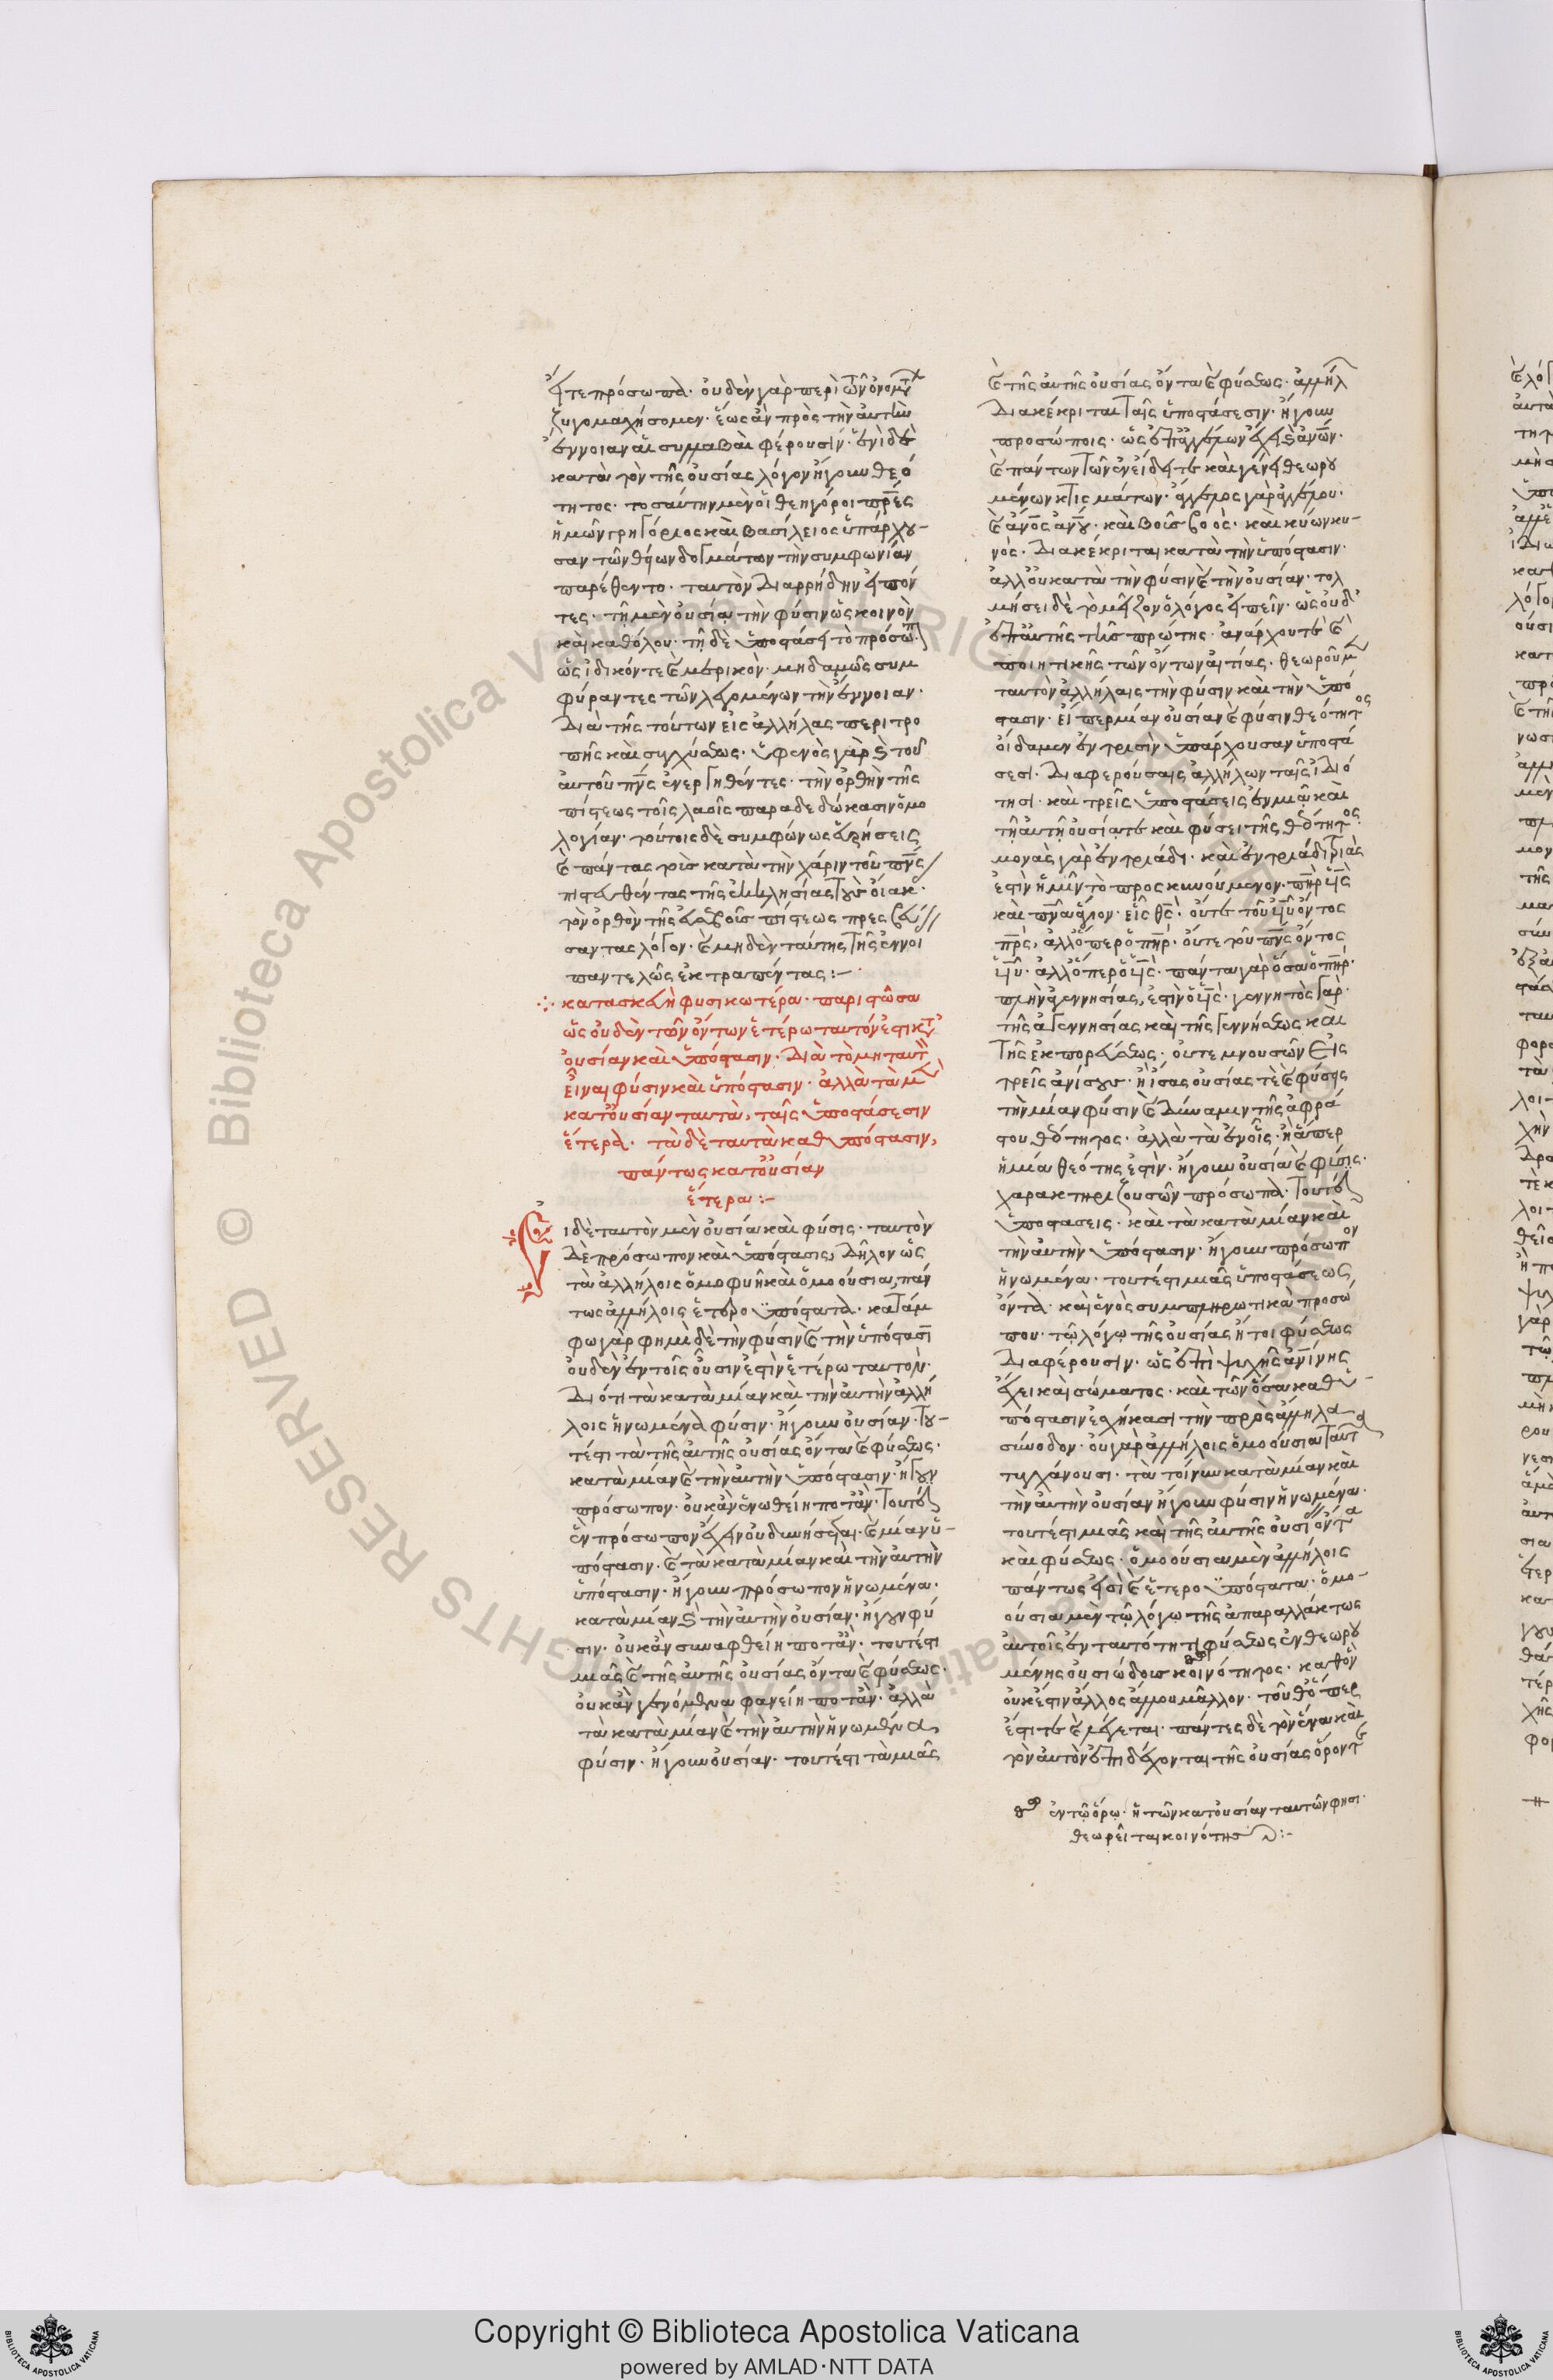 εἴτε πρόσωπα· οὐδὲν γὰρ περὶ τῶν ὀνομάτων
ζυγομαχήσομεν· ἕως ἂν πρὸς τὴν αὐτὴν
ἔννοιαν αἱ συλλαβαὶ φέρουσιν· ἐνὶ δὲ
κατὰ τὸν τῆς οὐσίας λόγον ἤγουν θεό
τητος· τοσαύτην μὲν οἱ θεηγόροι πρες
ἡμῶν γρηγόριος καὶ βασίλειος ὑπάρχου
σαν τῶν θείων δογμάτων τὴν συμφωνίαν
παρέθεντο· ταυτὸν διαρρήδην εἰπόν
τες· τῇ μὲν οὐσία τὴν φύσιν ὡς κοινὸν
καὶ καθόλου· τῇ δὲ ὑποστάσει τὸ πρόσωπ
ὡς ἰδικόν τε καὶ μερικόν· μηδαμῶς συμ
φύραντες τῶν λεγομένων τὴν ἔννοιαν·
διὰ τῆς τούτων εἰς ἀλλήλας περιτρο
πῆς καὶ συγχύσεως· ὑφ' ἑνὸς γὰρ καὶ τοῦ
αὐτοῦ πνς ἐνεργηθέντες· τὴν ὀρθὴν τῆς
πίστεως τοῖς λαοῖς παραδεδώκασιν ὁμο
λογίαν· τούτοις δὲ συμφώνως εὑρήσεις
καὶ πάντας τοὺς κατὰ τὴν χάριν τοῦ πνς
πιστευθέντας τῆς ἐκκλησίας τοὺς οἴακας·
τὸν ὀρθὸν τῆς εὐσεβοῦς πίστεως πρεσβεύ
σαντας λόγον· καὶ μηδὲν ταύτης τῆς ἐννοι
παντελῶς ἐκτραπέντας :-
κατασκευὴ φυσικωτέρα· παριστῶσα
ὡς οὐδὲν τῶν ὄντων ἑτέρω ταυτόν ἐστι κατ
οὐσίαν καὶ ὑπόστασιν· διὰ τὸ μὴ ταυτὸν
εἶναι φύσιν καὶ ὑπόστασιν· ἀλλὰ τὰ μὲν
κατ' οὐσίαν ταυτὰ, ταῖς ὑποστάσεσιν
ἕτερα· τὰ δὲ ταυτὰ καθ' ὑπόστασιν,
πάντως κατ' οὐσίαν
ἕτερα :-
Εἰ δὲ ταυτὸν μὲν οὐσία καὶ φύσις· ταυτὸν
δὲ πρόσωπον καὶ ὑπόστασις, δῆλον ὡς
τὰ ἀλλήλοις ὁμοφυῆ καὶ ὁμοούσια, πάν
τως ἀλλήλοις ἑτεροϋπόστατα· κατ' ἄμ
φω γὰρ φημὶ δὲ τὴν φύσιν καὶ τὴν ὑπόστασιν
οὐδὲν ἐν τοῖς οὖσιν ἐστὶν ἑτέρω ταυτόν·
διότι τὰ κατὰ μίαν καὶ τὴν αὐτὴν ἀλλή
λοις ἡνωμένα φύσιν· ἤγουν οὐσίαν· του
τέστι τὰ τῆς αὐτῆς οὐσίας ὄντα καὶ φύσεως·
κατὰ μίαν καὶ τὴν αὐτὴν ὑπόστασιν· ἤγουν
πρόσωπον· οὐκ ἂν ἑνωθείη ποτ' ἄν· τουτέστιν
ἓν πρόσωπον ἔχειν οὐ δυνήσεται· καὶ μίαν ὑ-
πόστασιν· καὶ τὰ κατὰ μίαν καὶ τὴν αὐτὴν
ὑπόστασιν· ἤγουν πρόσωπον ἡνωμένα·
κατὰ μίαν καὶ τὴν αὐτὴν οὐσίαν· ἤγουν φύ
σιν· οὐκ ἂν συναφθείη ποτ' ἄν· τουτέστι
μιᾶς καὶ τῆς αὐτῆς οὐσίας ὄντα καὶ φύσεως·
οὐκ ἂν γενόμενα φανείη ποτ' ἄν· ἀλλὰ
τὰ κατὰ μίαν καὶ τὴν αὐτὴν ἡνωμένα
φύσιν· ἤγουν οὐσίαν· τουτέστι τὰ μιᾶς
καὶ τῆς αὐτῆς οὐσίας ὄντα καὶ φύσεως· ἀλλήλ
διακέκριται ταῖς ὑποστάσεσιν· ἤγουν
προσώποις· ὡς ἐπ' ἀγγέλων ἔχει καὶ ἀνων·
καὶ πάντων τῶν ἐν εἴδει τε καὶ γένει θεωρου
μένων κτισμάτων· ἄγγελος γὰρ ἀγγέλου·
καὶ ἀνος ἀνου· καὶ βοῦς βοός· καὶ κύων κυ-
νὸς· διακέκριται κατὰ τὴν ὑπόστασιν·
ἀλλ' οὐ κατὰ τὴν φύσιν καὶ τὴν οὐσίαν· τολ
μήσει δὲ τὸ μεῖζον ὁ λόγος εἰπεῖν· ὡς οὐδ'
ἐπ' αὐτῆς τῆς πρώτης· ἀνάρχου τε καὶ
ποιητικῆς τῶν ὄντων αἰτίας· θεωροῦμεν
ταυτὸν ἀλλήλαις τὴν φύσιν καὶ τὴν ὑπό
στασιν· εἴπερ μίαν οὐσίαν καὶ φύσιν θεότητος
οἴδαμεν ἐν τρισὶν ὑπάρχουσαν ὑποστά
σεσι· διαφερούσαις ἀλλήλων ταῖς ἰδιό
τησι· καὶ τρεῖς ὑποστάσεις ἐν μιᾷ καὶ
τῇ αὐτῇ οὐσία τε καὶ φύσει τῆς θεότητος·
μονὰς γὰρ ἐν τριάδι· καὶ ἐν μονάδι τριὰς
ἐστὶν ἡμῖν τὸ προσκυνούμενον· πηρ υἱς
καὶ πνα ἅγιον· εἷς θς· οὔτε τοῦ υἱυ ὄντος
πρς, ἀλλ' ὅπερ ὁ πηρ· οὔτε τοῦ πνς ὄντος
υἱυ· ἀλλ' ὅπερ ὁ υἱς· πάντα γὰρ ὅσα ὁ πηρ·
πλὴν ἀγεννησίας, ἐστὶν ὁ υἱς· γεννητὸς γὰρ·
τῆς ἀγεννησίας καὶ τῆς γεννήσεως καὶ
τῆς ἐκπορεύσεως· οὔτε μνουσῶν εἰς
τρεῖς ἀνίσους· ἢ ἴσας οὐσίας τὲ καὶ φύσεις
τὴν μίαν φύσιν καὶ δύναμιν τῆς ἀφρά
στου θεότητος· ἀλλὰ τὰ ἐν οἷς· ἢ ἅπερ
ἡ μία θεότης ἐστὶν· ἤγουν οὐσία καὶ φύσις·
χαρακτηριζουσῶν πρόσωπα· τουτέστιν
ὑποστάσεις· καὶ τὰ κατὰ μίαν καὶ
τὴν αὐτὴν ὑπόστασιν· ἤγουν πρόσωπον
ἡνωμένα· τουτέστι μιᾶς ὑποστάσεως
ὄντα· καὶ ἑνὸς συμπληρωτικὰ προσώ
που· τῷ λόγω τῆς οὐσίας ἤτοι φύσεως
διαφέρουσιν· ὡς ἐπὶ ψυχῆς ἀνίνης
ἔχει καὶ σώματος· καὶ τῶν ὅσα καθ' ὑ-
πόστασιν ἐσχήκασι τὴν πρὸς ἄλληλα
σύνοδον· οὐ γὰρ ἀλλήλοις ὁμοούσια ταῦτα
τυγχάνουσι· τὰ τοίνυν κατὰ μίαν καὶ
τὴν αὐτὴν οὐσίαν ἤγουν φύσιν ἡνωμένα·
τουτέστι μιᾶς καὶ τῆς αὐτῆς οὐσίας ὄντα
καὶ φύσεως· ὁμοούσια μὲν ἀλλήλοις
πάντως εἰσὶ καὶ ἑτεροϋπόστατα· ὁμο-
ούσια μὲν τῷ λόγω τῆς ἀπαραλλάκτως
αὐτοῖς ἐν ταυτότητι φύσεως ἐνθεωρου
μένης οὐσιώδους κοινότητος· καθ' ὃν
οὐκ ἔστιν ἄλλος ἄλλου μᾶλλον· τοῦθ' ὅπερ
ἐστί τε καὶ λέγεται· πάντες δὲ τὸν ἕνα καὶ
τὸν αὐτὸν ἐπιδέχονται τῆς οὐσίας ὅρον τε
ἐν τῷ ὅρω· ἡ τῶν κατ' οὐσίαν ταυτῶν φησι·
θεωρεῖται κοινότης :-